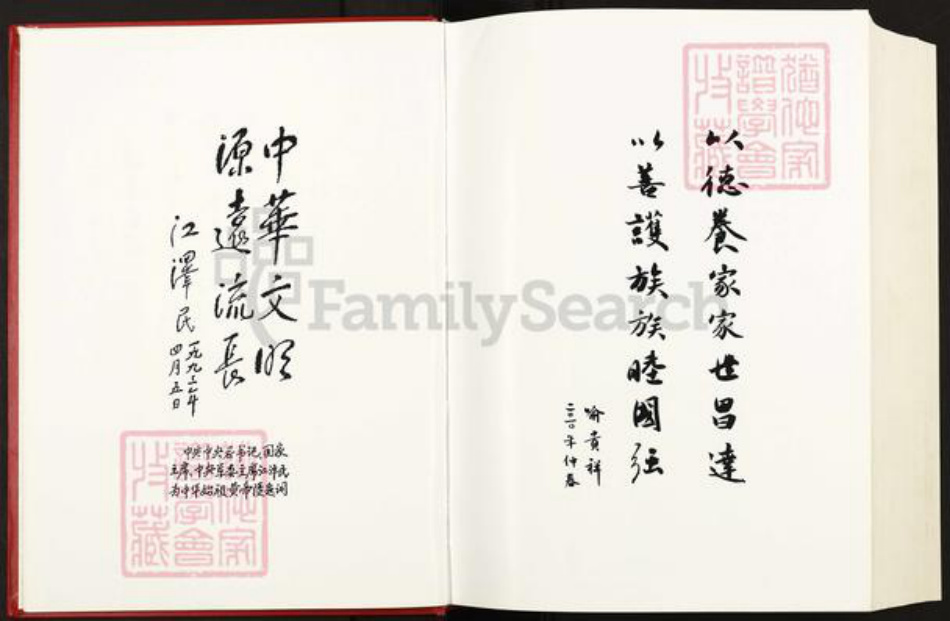 中華文明
源遠流長
江澤民
一九九三年
四月五日
中共中央总书记、国家
主席、中央军委主席江泽民
为中华始祖黄帝陵题词
猶他家
譜學會
收藏
以德養家家世昌達
以善護族族睦國强
喻貴祥
二〇一〇年仲春
猶他家
譜學會
收藏
FamilySearch